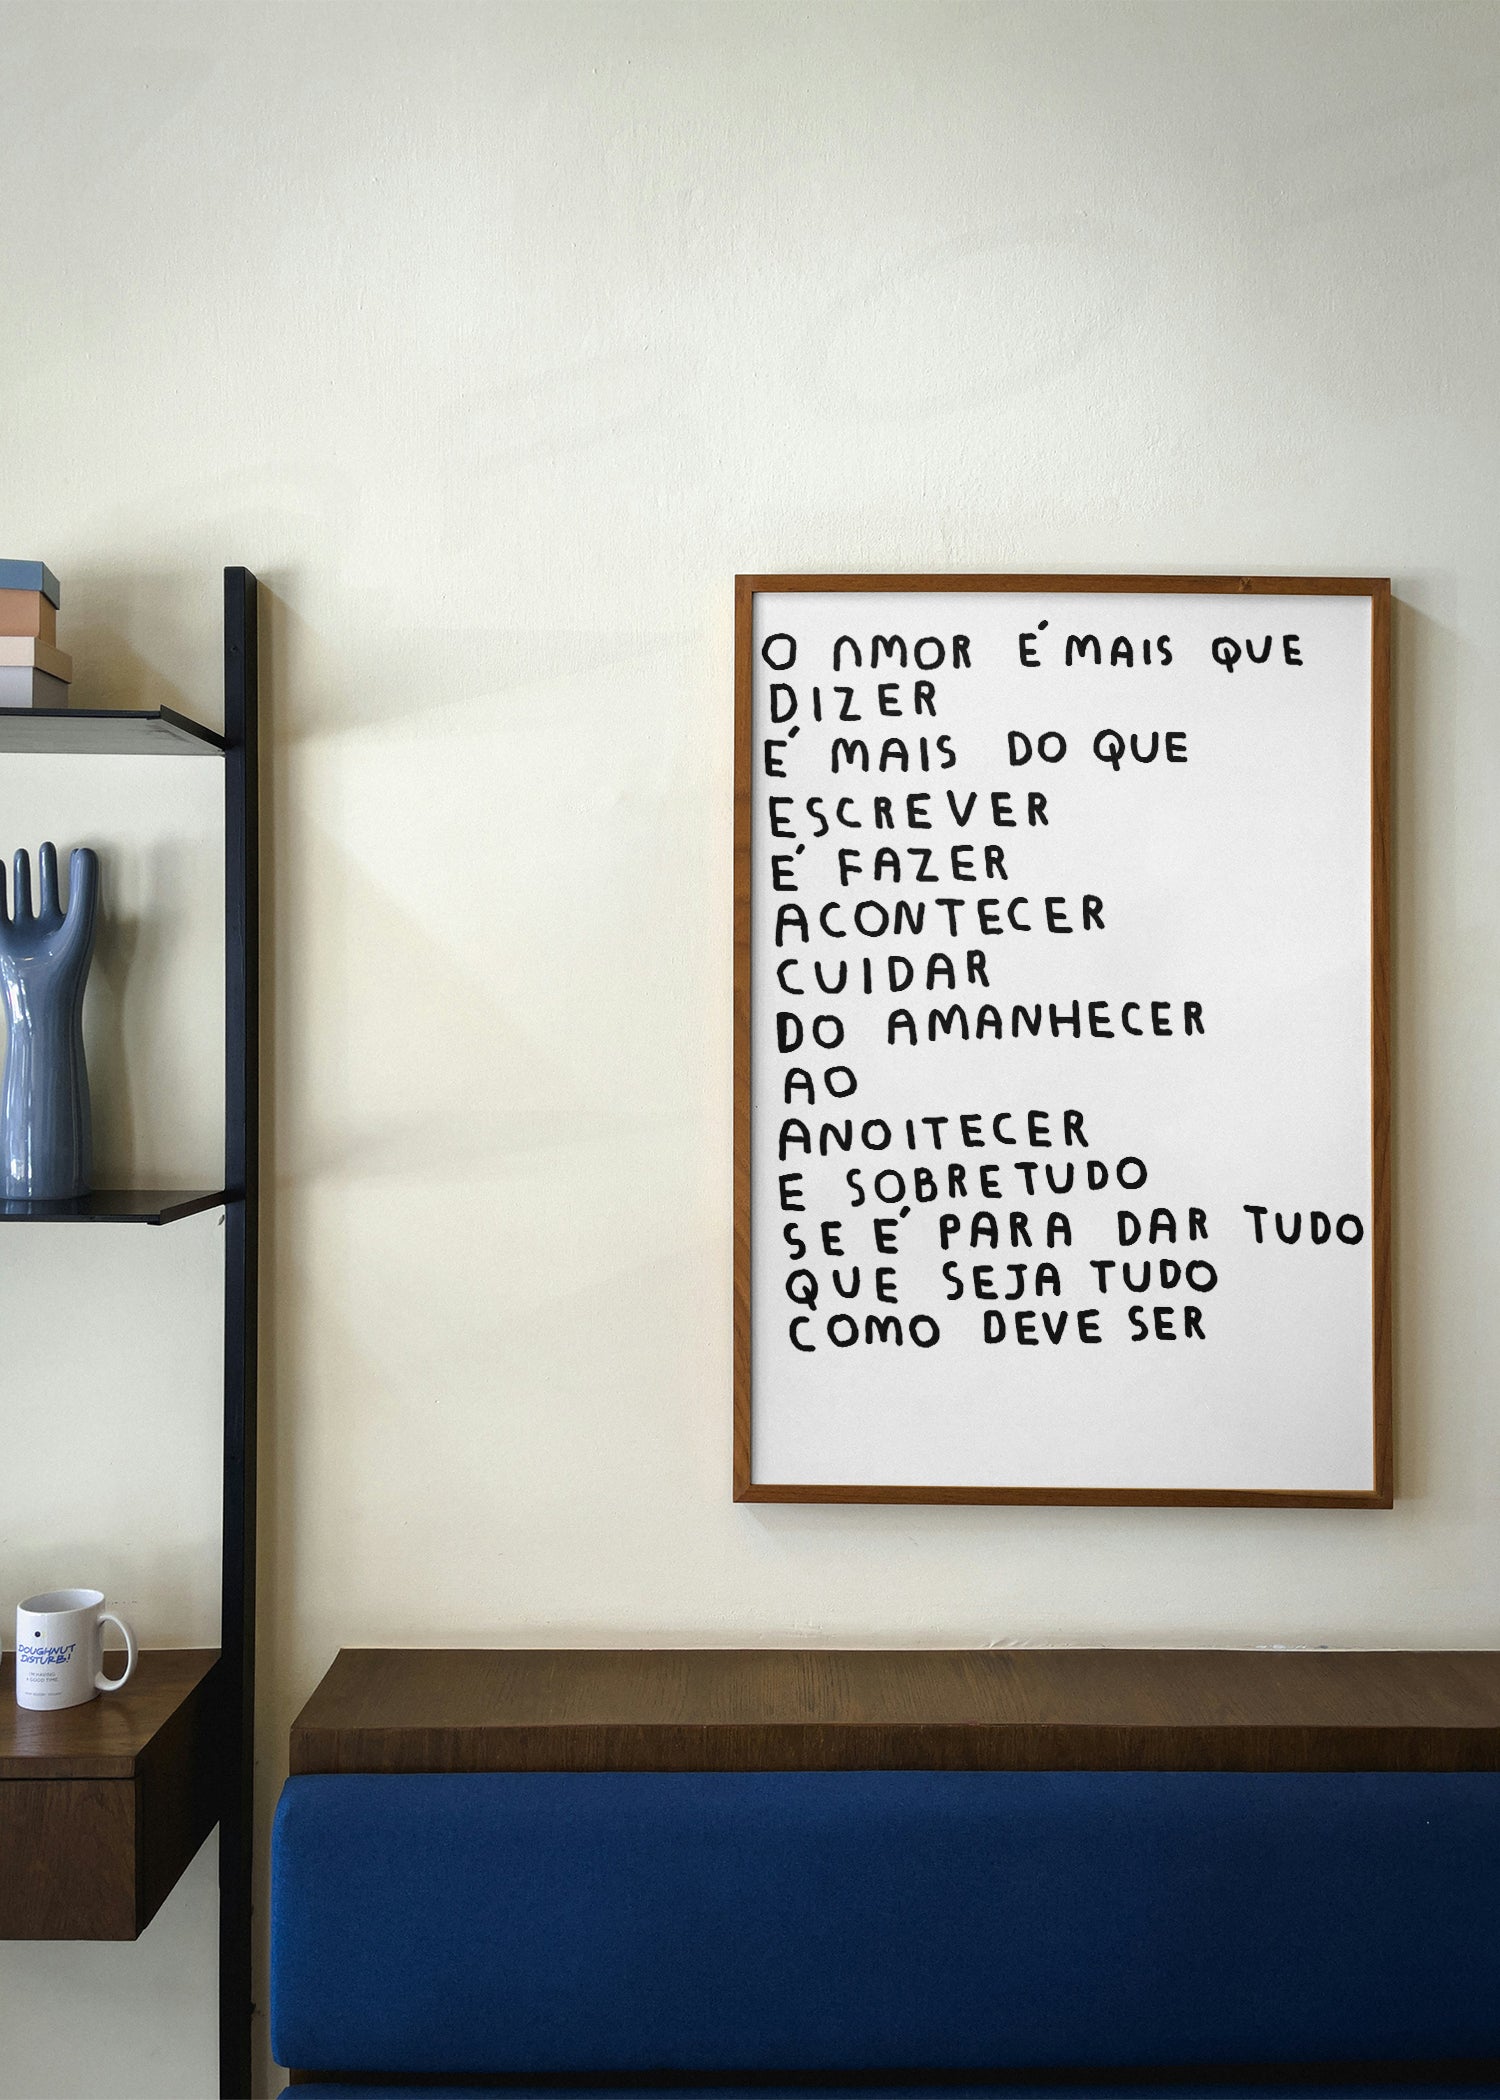 O AMOR É MAIS QUE
DIZER
É MAIS DO QUE
ESCREVER
É FAZER
ACONTECER
CUIDAR
DO AMANHECER
AO
ANOITECER
E SOBRETUDO
SE É PARA DAR TUDO
QUE SEJA TUDO
COMO DEVE SER
DOUGHNUT
DISTURB!
I'M HAVING
A GOOD TIME